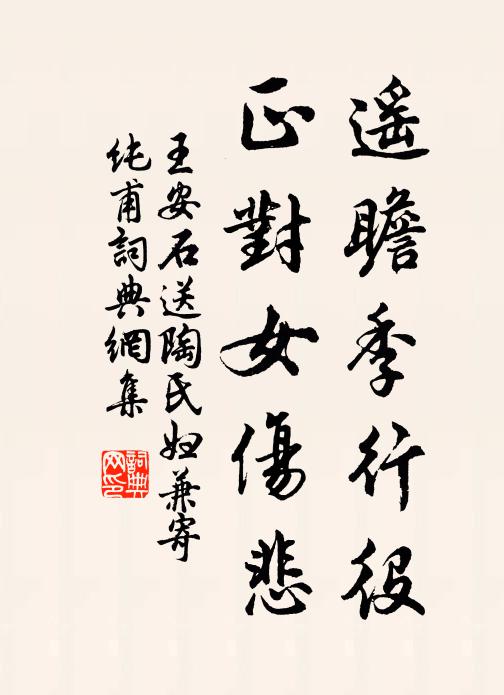 遙瞻季行役
正對女傷悲
王安石送陶氏婦兼寄
純甫詞典網集
詞典
网印